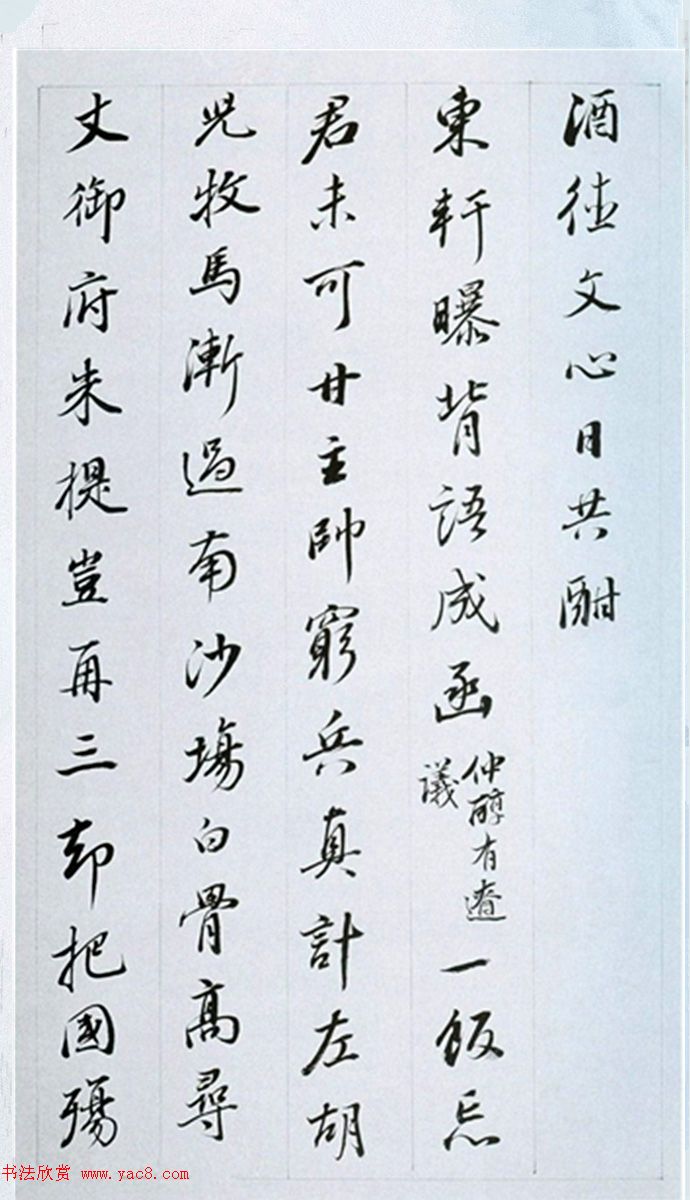 酒德文心日共酣
東軒曝背語成函
仲醇有遼
議
一飯忘
君未可甘主帥窮兵真計左胡
兒牧馬漸過南沙塲白骨高尋
丈御府朱提豈再三却把國殤
书法欣赏 www.yac8.com